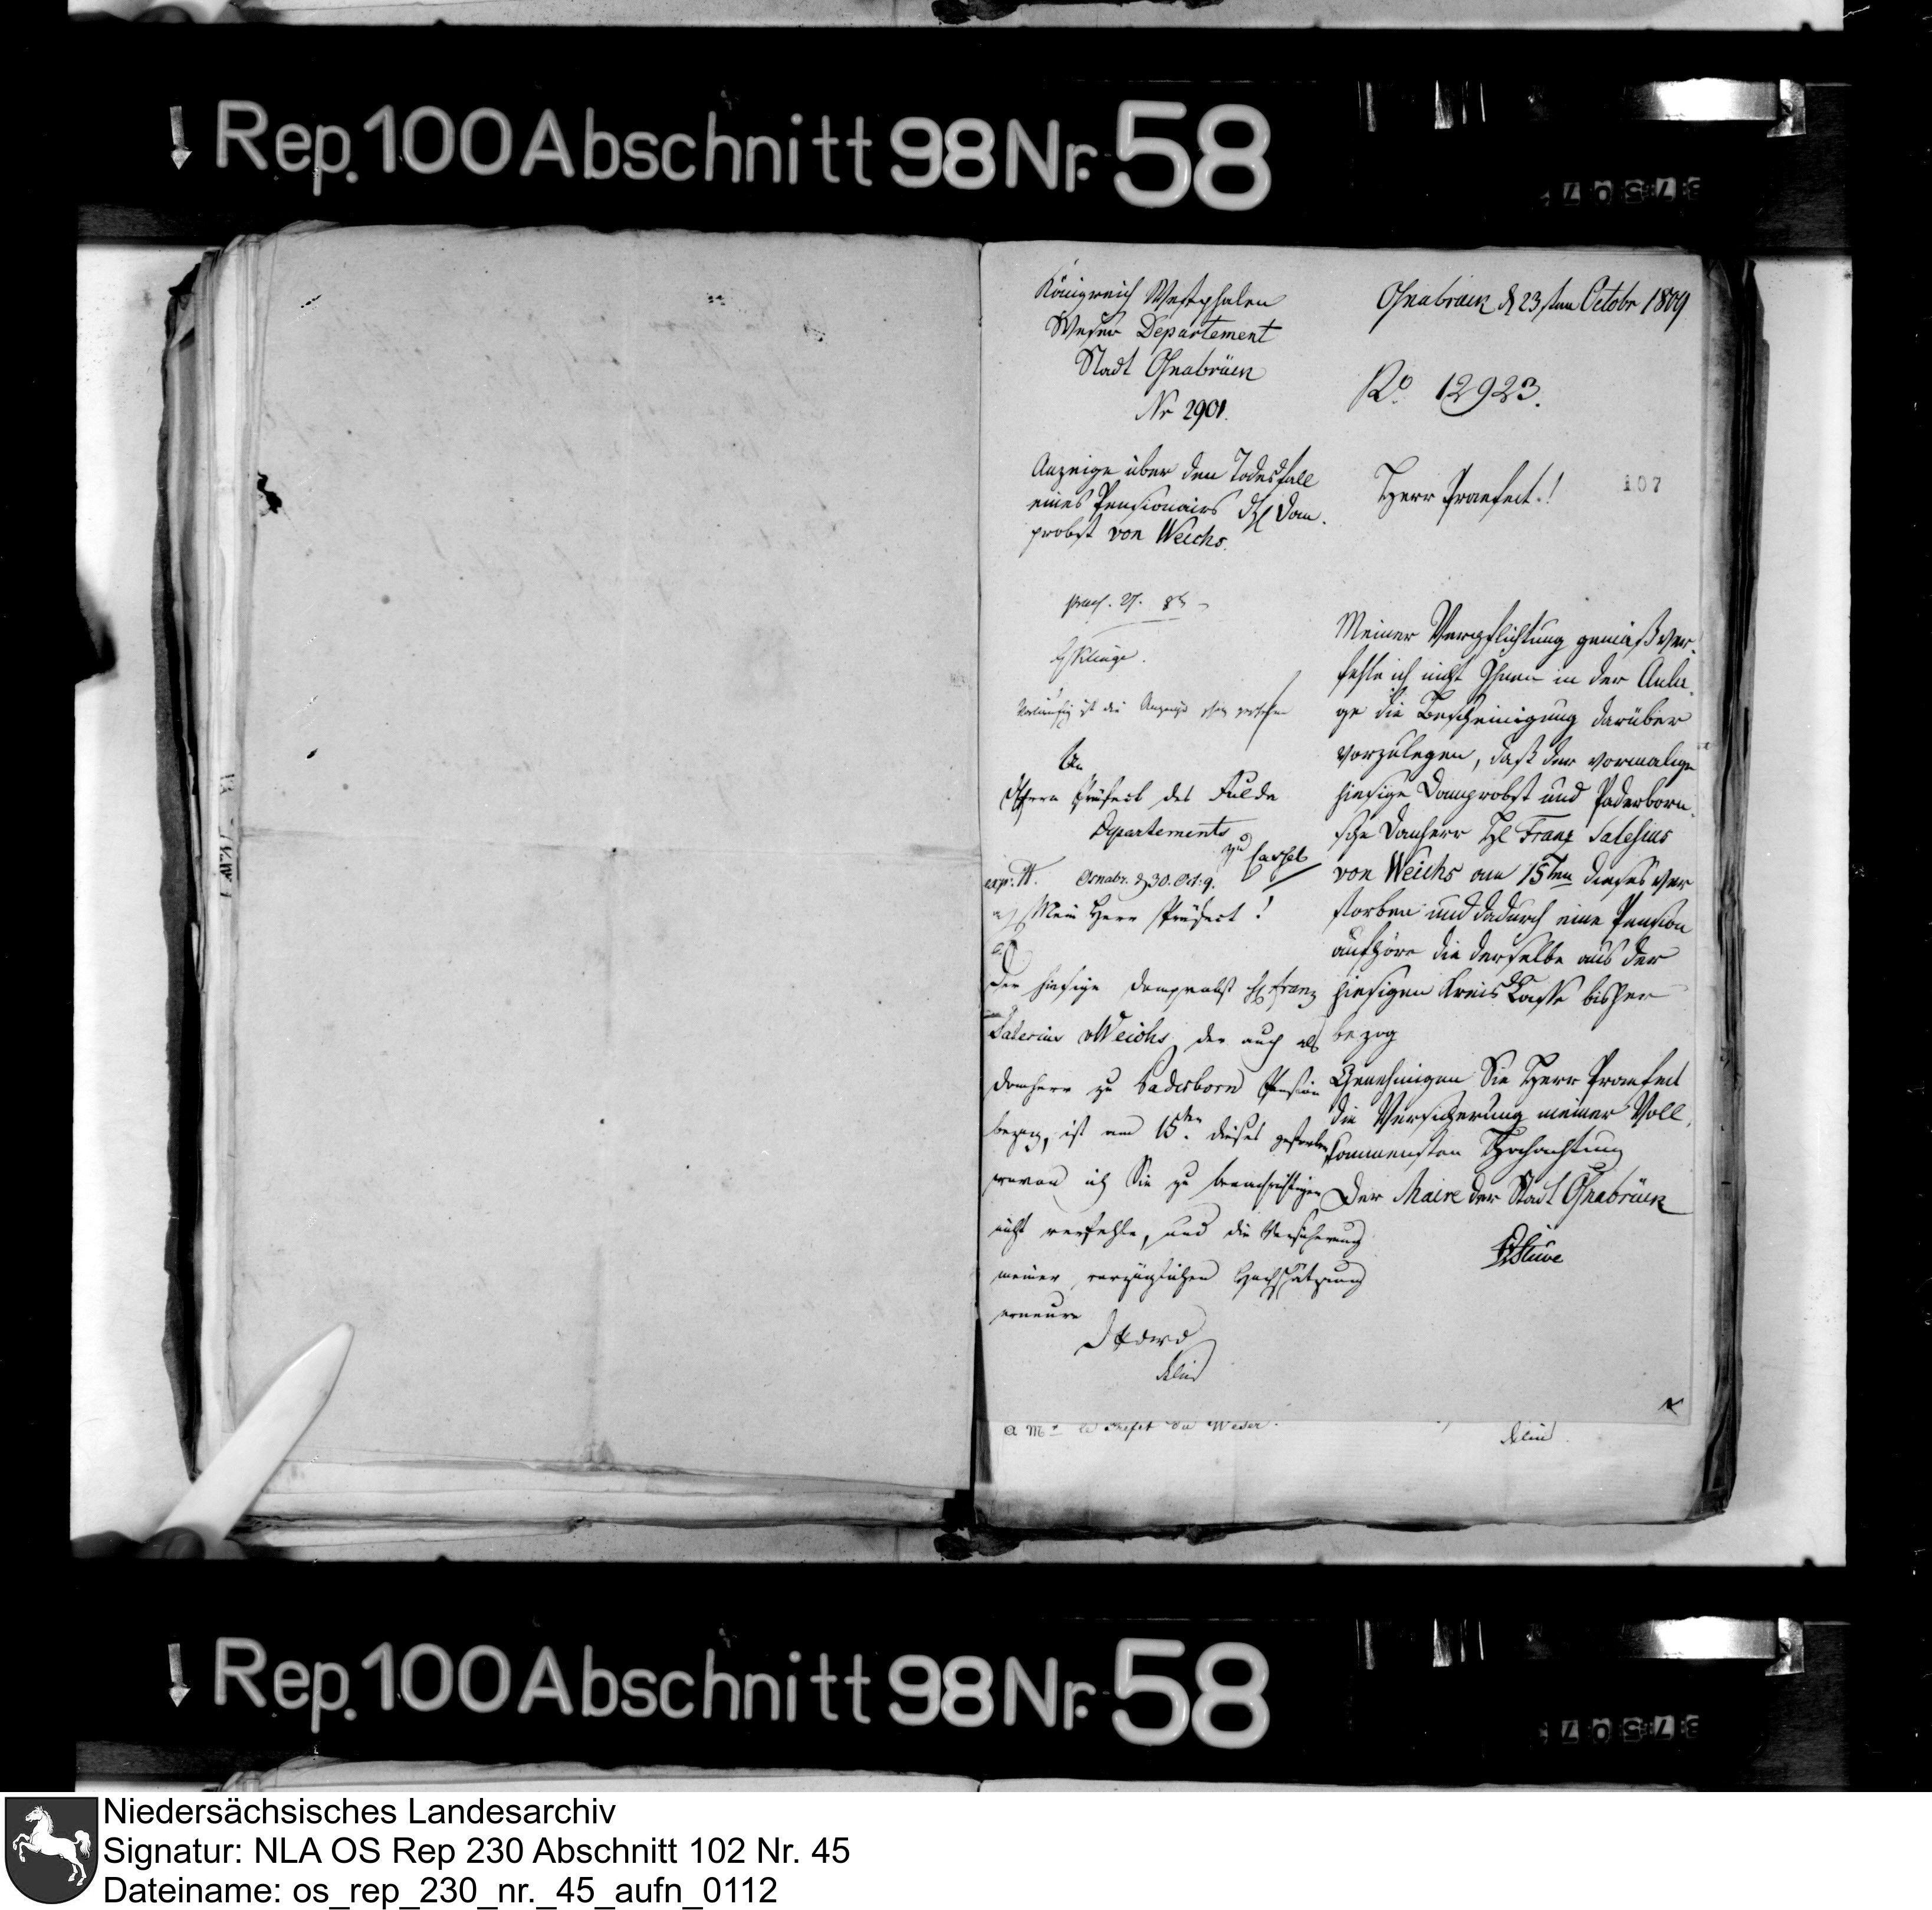 Rep. 100 Abschnitt 98 Nr. 58
Königreich Westphalen
Weser Departement
Stadt Osnabrück
Nr 2901.
Osnabrück d 23sten Octobr 1809
No. 12923.
107
Anzeige über den Todesfall
eines Pensionairs Dom
probst von Weichs.
Herr Praefect!
Meiner Verpflichtung gemäß ver
fehle ich nicht Ihnen in der Anla
ge die Bescheinigung darüber
vorzulegen, daß der vormalige
hiesige Domprobst und Paderborn
sche Domherr H Franz Salesius
von Weichs am 15ten dieses ver
storben und dadurch eine Pension
aufhöre die derselbe aus der
hiesigen Kreis Casse bisher
bezog
Genehmigen Sie Herr Praefect
die Versicherung meiner Voll
kommensten Hochachtung
Der Maire der Stadt Osnabrück
Stüve
Vorläufig ist die Anzeige
An
Herrn Präfect des Fulda
Departements
zu Cassel
exp. Osnabr. d 30. Oct. 9.
Mein Herr Präfect!
Der hiesige Domprobst H Franz
Salesius v Weichs, der auch als
Domherr zu Paderborn Pension
bezog, ist am 15ten dieses gestorben
wovon ich Sie zu benachrichtigen
nicht verfehle, und die Versicherung
meiner vorzüglichen Hochschätzung
erneure
a Mr le Prefet du Weser.
Rep. 100 Abschnitt 98 Nr. 58
Niedersächsisches Landesarchiv
Signatur: NLA OS Rep 230 Abschnitt 102 Nr. 45
Dateiname: os_rep_230_nr._45_aufn_0112